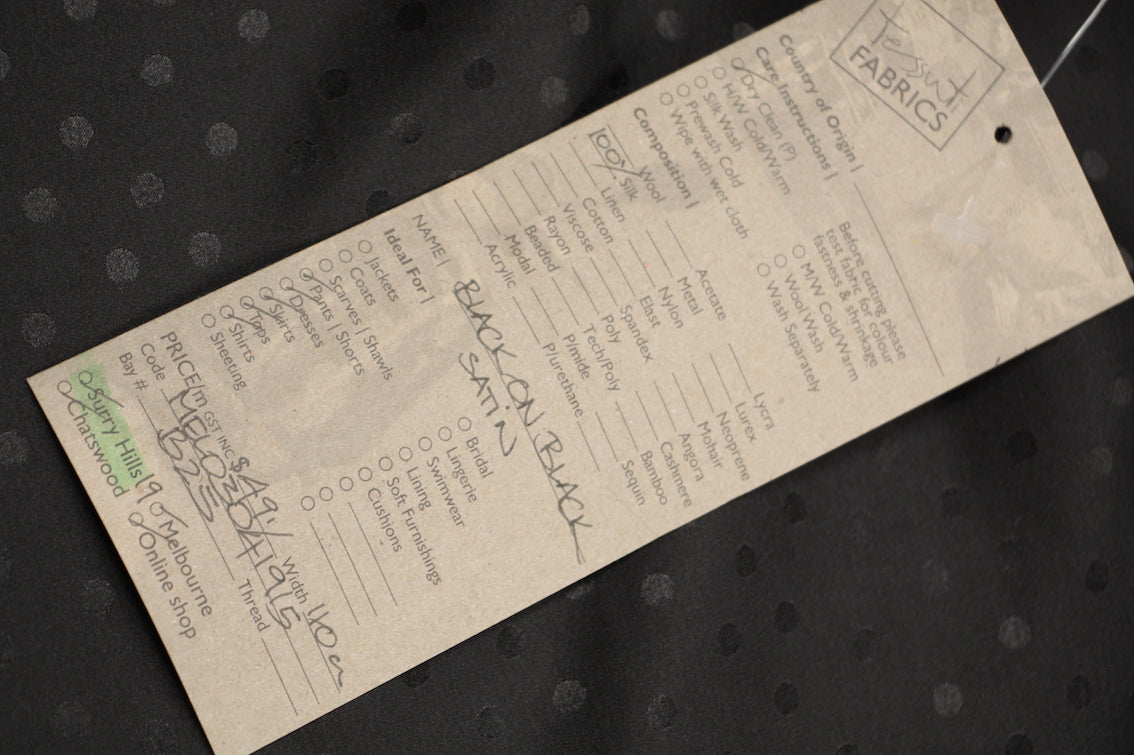 Tessuti
FABRICS
Country of Origin |
Care Instructions |
Dry Clean (P)
H/W Cold/Warm
Silk Wash
Prewash Cold
Wipe with wet cloth
Before cutting please
test fabric for colour
fastness & shrinkage
M/W Cold/Warm
Wool Wash
Wash Separately
Composition |
Wool
100% Silk
Linen
Cotton
Viscose
Rayon
Beaded
Modal
Acrylic
Acetate
Metal
Nylon
Elast
Spandex
Poly
Tech/Poly
P/mide
P/urethane
Lycra
Lurex
Neoprene
Mohair
Angora
Cashmere
Bamboo
Sequin
NAME | BLACK ON BLACK
SATIN
Ideal For |
Jackets
Coats
Scarves | Shawls
Pants | Shorts
Dresses
Skirts
Tops
Shirts
Sheeting
Bridal
Lingerie
Swimwear
Lining
Soft Furnishings
Cushions
PRICE/m GST INC $49. Width 110cm
Code MEL03041915
Bay # B225 Thread
Surry Hills Melbourne
Chatswood Online shop